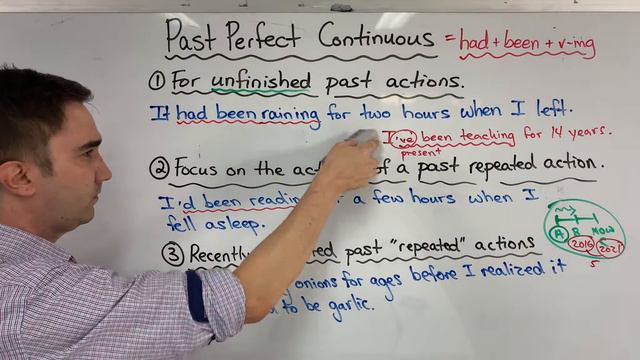 Past Perfect Continuous = had + been + v-ing
① For unfinished past actions.
It had been raining for two hours when I left.
I've been teaching for 14 years.
present
② Focus on the of a past repeated action.
I'd been a few hours when I
fell asleep.
A B NOW
2016 2021
5
③ Recently past "repeated" actions
onions for ages before I realized it
to be garlic.